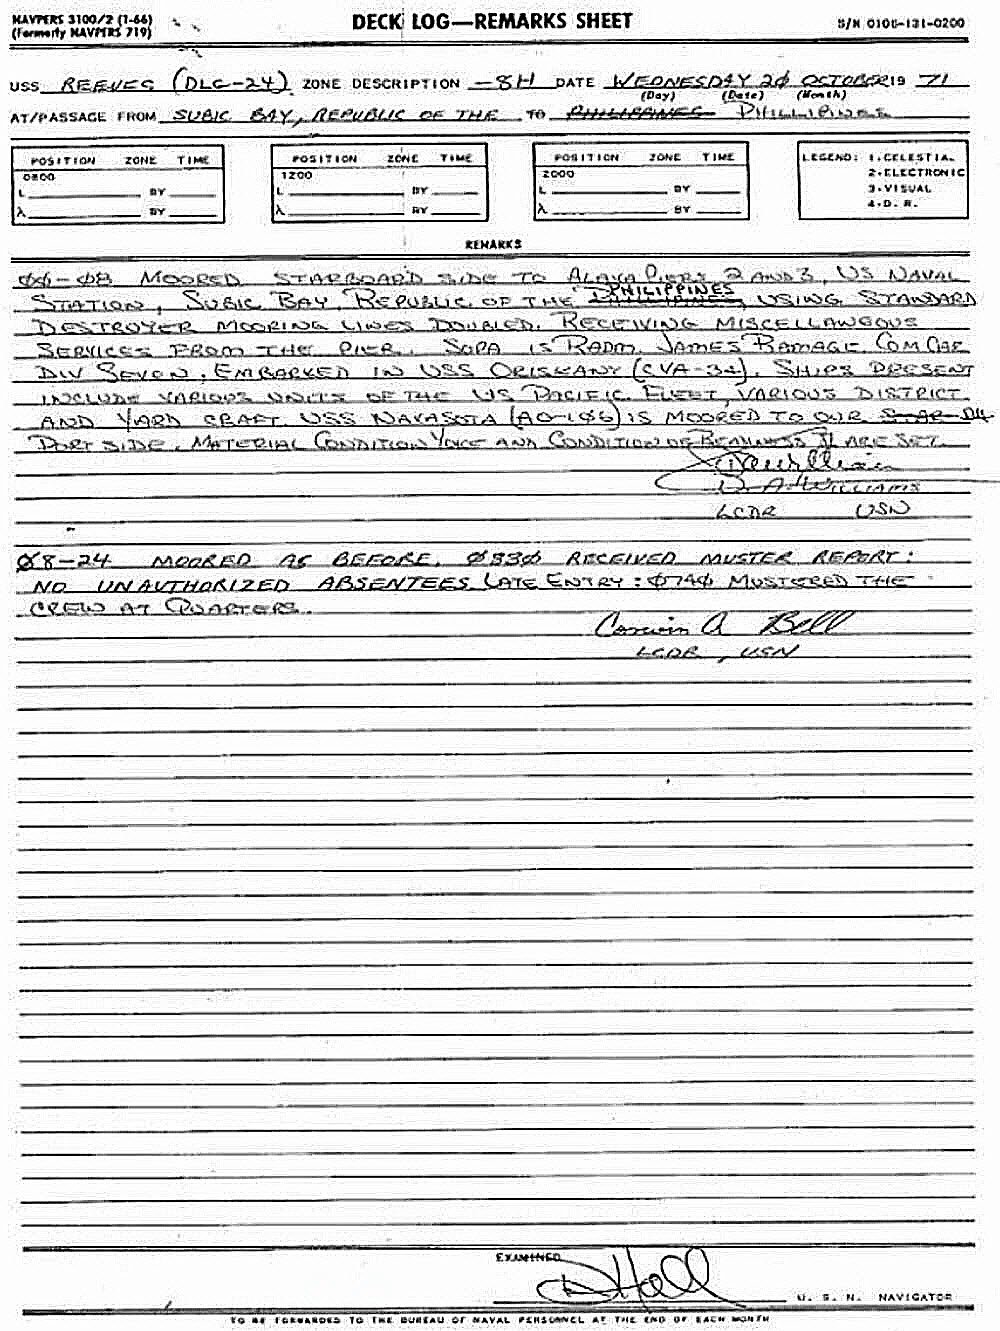 NAVPERS 3100/2 (1-66)
(Formerly NAVPERS 719)
DECK LOG—REMARKS SHEET
S/N 0106-131-0200
USS REEVES (DLG-24) ZONE DESCRIPTION -8H DATE WEDNESDAY 2Ø OCTOBER 19 71
(Day) (Date) (Month)
AT/PASSAGE FROM SUBIC BAY, REPUBLIC OF THE TO PHILLIPINES PHILLIPINES
POSITION ZONE TIME
0800
L BY
λ BY
POSITION ZONE TIME
1200
L BY
λ BY
POSITION ZONE TIME
2000
L BY
λ BY
LEGEND: 1-CELESTIAL
2-ELECTRONIC
3-VISUAL
4-D. R.
REMARKS
ØØ-Ø8 MOORED STARBOARD SIDE TO ALAVA PIERS 2 AND 3, US NAVAL
STATION, SUBIC BAY, REPUBLIC OF THE PHILLIPINES PHILIPPINES, USING STANDARD
DESTROYER MOORING LINES DOUBLED. RECEIVING MISCELLANEOUS
SERVICES FROM THE PIER. SOPA IS RADM. JAMES RAMAGE, COMCAR
DIV SEVEN, EMBARKED IN USS ORISKANY (CVA-34). SHIPS PRESENT
INCLUDE VARIOUS UNITS OF THE US PACIFIC FLEET, VARIOUS DISTRICT
AND YARD CRAFT. USS NAVASOTA (AO-106) IS MOORED TO OUR
PORT SIDE. MATERIAL CONDITION YOKE AND CONDITION OF READINESS II ARE SET.
D. A. WILLIAMS
LCDR USN
Ø8-24 MOORED AS BEFORE. Ø83Ø RECEIVED MUSTER REPORT:
NO UNAUTHORIZED ABSENTEES. LATE ENTRY: Ø74Ø MUSTERED THE
CREW AT QUARTERS.
Corwin A Bell
LCDR, USN
EXAMINED
D Hall
U. S. N. NAVIGATOR
TO BE FORWARDED TO THE BUREAU OF NAVAL PERSONNEL AT THE END OF EACH MONTH